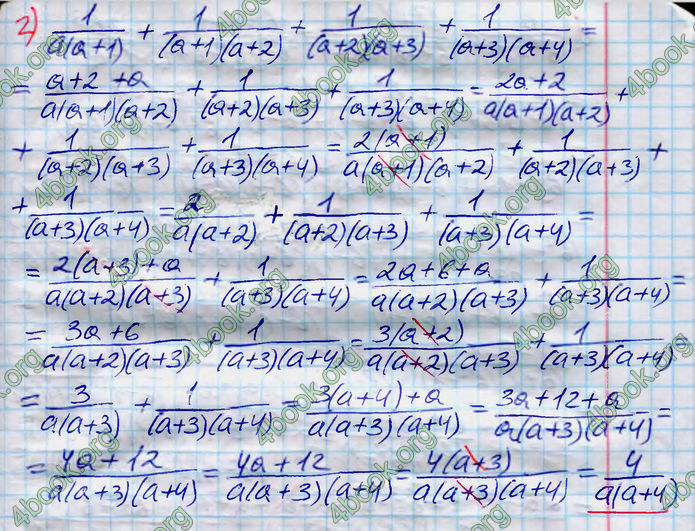 2) 1/(a(a+1)) + 1/((a+1)(a+2)) + 1/((a+2)(a+3)) + 1/((a+3)(a+4)) =
= (a+2+a)/(a(a+1)(a+2)) + 1/((a+2)(a+3)) + 1/((a+3)(a+4)) = (2a+2)/(a(a+1)(a+2)) +
+ 1/((a+2)(a+3)) + 1/((a+3)(a+4)) = 2(a+1)/(a(a+1)(a+2)) + 1/((a+2)(a+3)) +
+ 1/((a+3)(a+4)) = 2/(a(a+2)) + 1/((a+2)(a+3)) + 1/((a+3)(a+4)) =
= (2(a+3)+a)/(a(a+2)(a+3)) + 1/((a+3)(a+4)) = (2a+6+a)/(a(a+2)(a+3)) + 1/((a+3)(a+4)) =
= (3a+6)/(a(a+2)(a+3)) + 1/((a+3)(a+4)) = 3(a+2)/(a(a+2)(a+3)) + 1/((a+3)(a+4)) =
= 3/(a(a+3)) + 1/((a+3)(a+4)) = (3(a+4)+a)/(a(a+3)(a+4)) = (3a+12+a)/(a(a+3)(a+4)) =
= (4a+12)/(a(a+3)(a+4)) = (4a+12)/(a(a+3)(a+4)) = 4(a+3)/(a(a+3)(a+4)) = 4/(a(a+4))
4book.org